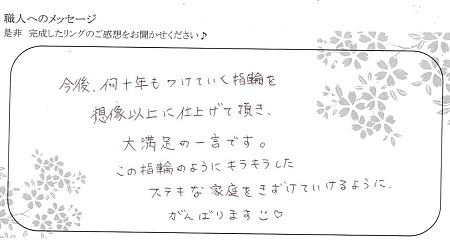 職人へのメッセージ
是非 完成したリングのご感想をお聞かせください♪
今後、何十年もつけていく指輪を
想像以上に仕上げて頂き、
大満足の一言です。
この指輪のようにキラキラした
ステキな家庭をきずけていけるように、
がんばります☺♡